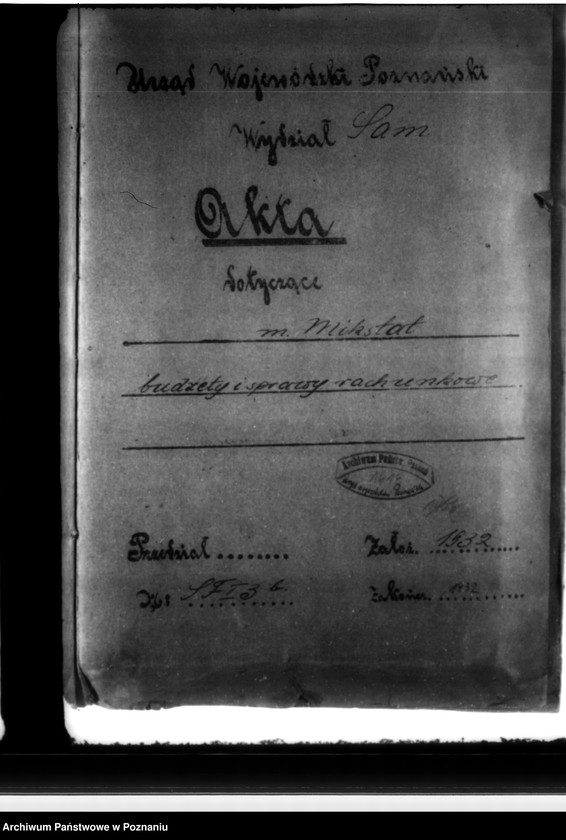 Urząd Wojewódzki Poznański
Wydział Sam
Akta
dotyczące
m. Mikstat
budżety i sprawy rachunkowe
Archiwum Państw. Poznań
Przedział ........
Założ. 1932
Zakończ. 1932
Archiwum Państwowe w Poznaniu